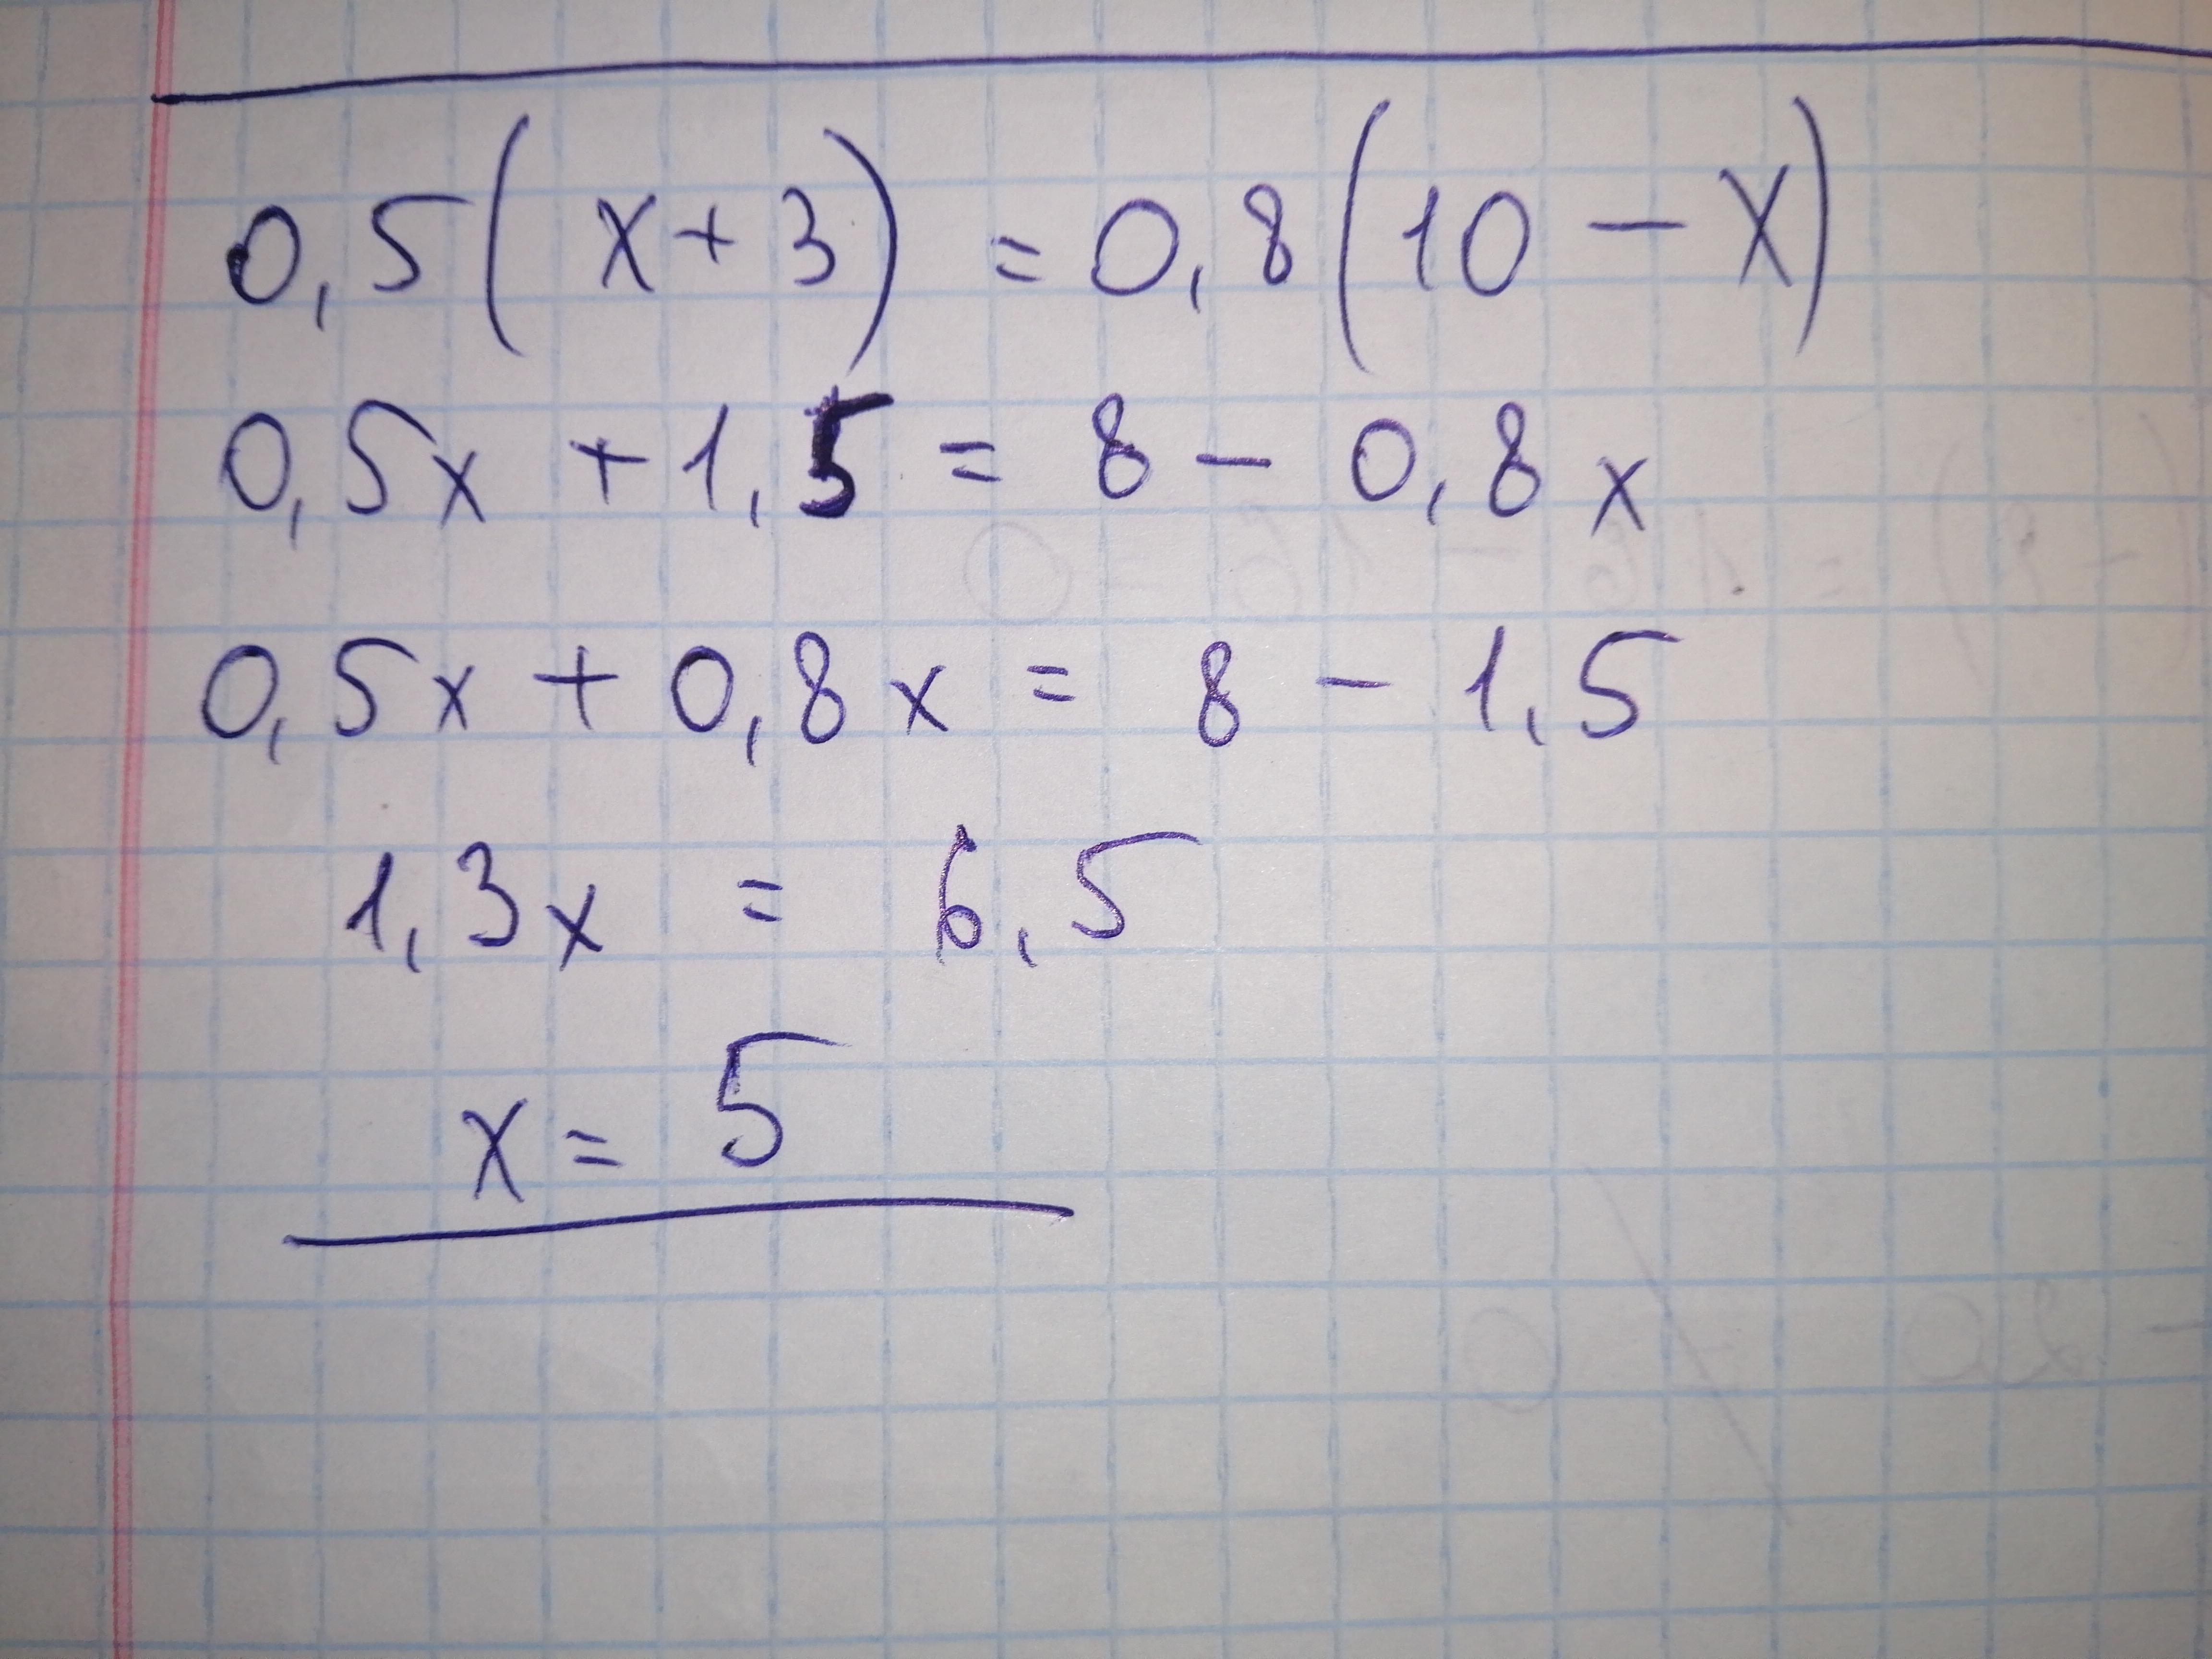 0,5(x+3) = 0,8(10 - x)
0,5x + 1,5 = 8 - 0,8x
0,5x + 0,8x = 8 - 1,5
1,3x = 6,5
x = 5